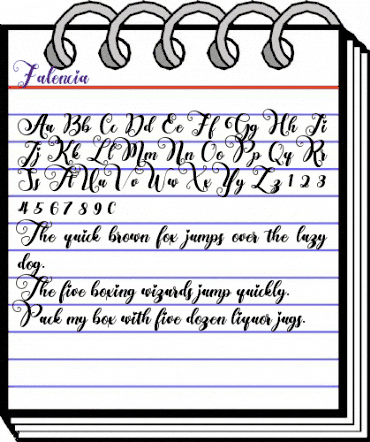 Falencia
Aa Bb Cc Dd Ee Ff Gg Hh Ii
Jj Kk Ll Mm Nn Oo Pp Qq Rr
Ss Tt Uu Vv Ww Xx Yy Zz 1 2 3
4 5 6 7 8 9 0
The quick brown fox jumps over the lazy
dog.
The five boxing wizards jump quickly.
Pack my box with five dozen liquor jugs.